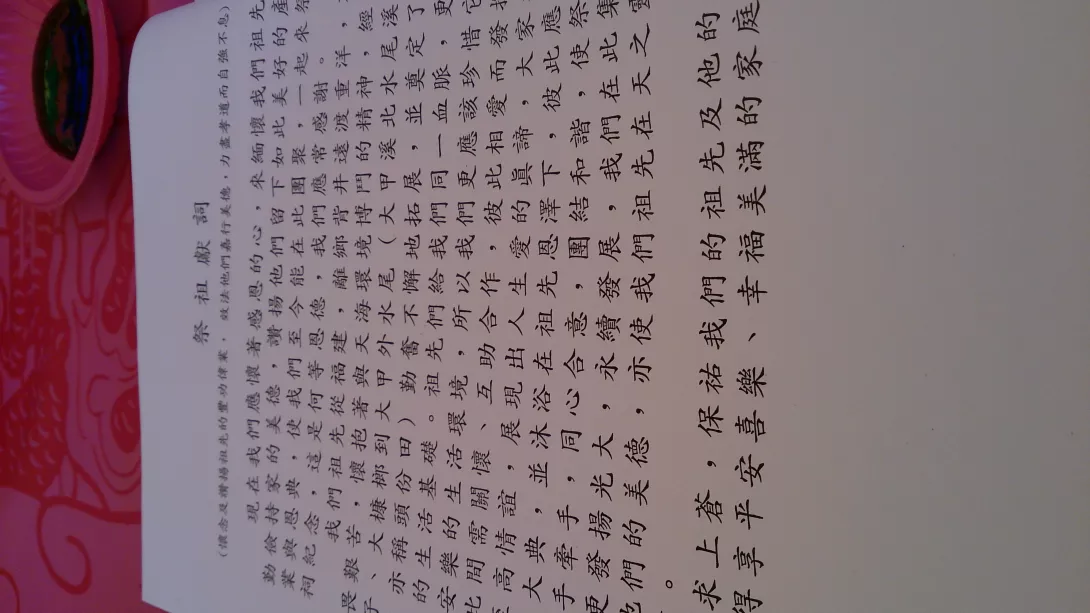 祭祖獻詞
(懷念及讚揚祖先的豐功偉業,效法他們嘉行美德,力盡孝道而自強不息)
現在我們應懷著感恩的心,來緬懷我們祖先
勤儉持家的美德,讚揚他們留下如此美好的產
業與恩典,使我們至今能在此團聚,一起來祭
祠紀念,這是何等恩德,我們應常感謝。
我們祖先從福建,離鄉背井遠渡重洋,
畏艱苦,懷抱著與天海環境博鬥的精神,經
、大槺榔到大甲外水尾(大甲溪北水尾溪
亦稱頭份田)勤奮不懈地拓展,並奠定了
的生活基礎。祖先們給我們同一血脈,更
安樂的生活環境,所以我們更應該珍惜它
此間需關懷、互助合作,彼此相愛而發
高情誼,展現出人生愛的真諦,大家
大典,並沐浴在祖先恩澤下,彼此應
手牽手,同心合意,團結和諧,使祭
更發揚光大,永續發展,我們在此集
他們的美德,亦使我們祖先在天之靈
。
求上蒼,保祐我們的祖先及他的
得享平安喜樂、幸福美滿的家庭